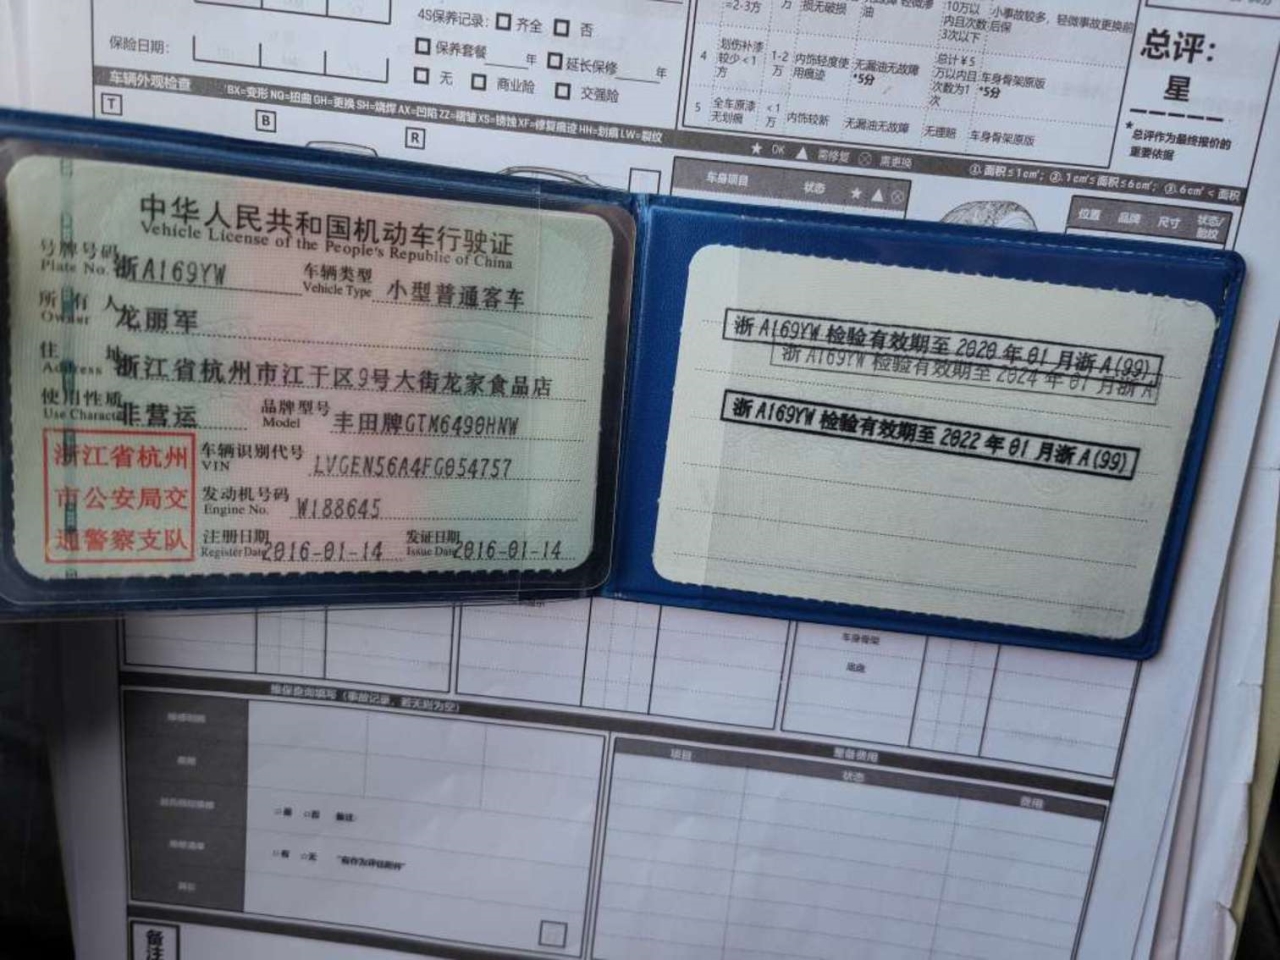 4S保养记录: 齐全 否
保险日期:
保养套餐 年 延长保修 年
无 商业险 交强险
=2-3万
万
损无破损
油
10万以内且次数3次以下
小事故较多，轻微事故更换前后保
4 划伤补漆较少<1万 1-2万 内饰轻度使用痕迹 无漏油无故障 *5分 总计¥5万以内且次数为1次 车身骨架原版 *5分
5 全车原漆无划痕 <1万 内饰较新 无漏油无故障 无理赔 车身骨架原版
总评:
星
*总评作为最终报价的重要依据
车辆外观检查 *BX=变形 NG=扭曲 GH=更换 SH=烧焊 AX=凹陷 ZZ=褶皱 XS=锈蚀 XF=修复痕迹 HH=划痕 LW=裂纹
★ OK ▲ 需修复 ⊗ 需更换
①.面积≤1c㎡; ②.1c㎡≤面积≤6c㎡; ③.6c㎡<面积
T
B
R
车身项目 状态 ★ ▲ ⊗
位置 品牌 尺寸 状态/胎纹
中华人民共和国机动车行驶证
Vehicle License of the People's Republic of China
号牌号码 浙A169YW 车辆类型 小型普通客车
Plate No. Vehicle Type
所有人 龙丽军
Owner
住址 浙江省杭州市江干区9号大街龙家食品店
Address
使用性质 非营运 品牌型号 丰田牌GTM6490HNW
Use Character Model
浙江省杭州
市公安局交
通警察支队
车辆识别代号 LVGEN56A4FG054757
VIN
发动机号码 W188645
Engine No.
注册日期 2016-01-14 发证日期 2016-01-14
Register Date Issue Date
浙A169YW检验有效期至2020年01月浙A(99)
浙A169YW检验有效期至2024年01月浙A
浙A169YW检验有效期至2022年01月浙A(99)
车身骨架
底盘
维保查询填写（事故记录，若无则为空）
项目
整备费用
状态
费用
备注